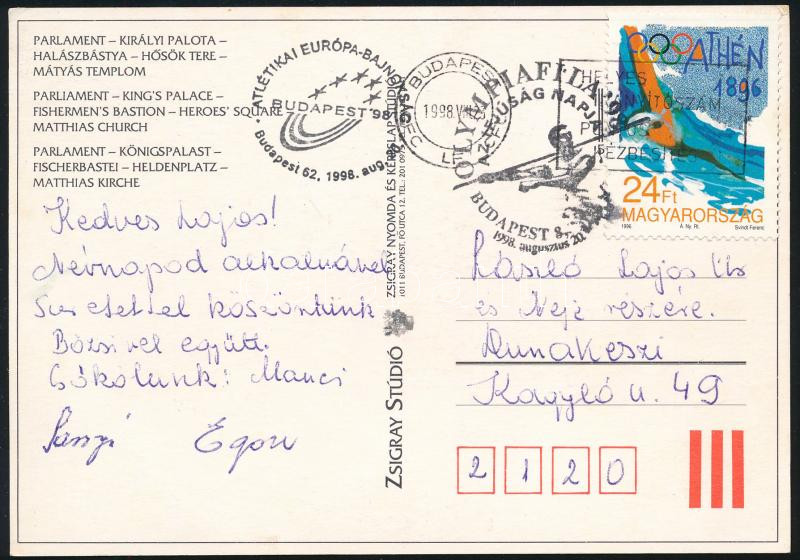 PARLAMENT – KIRÁLYI PALOTA –
HALÁSZBÁSTYA – HŐSÖK TERE –
MÁTYÁS TEMPLOM
PARLIAMENT – KING'S PALACE –
FISHERMEN'S BASTION – HEROES' SQUARE –
MATTHIAS CHURCH
PARLAMENT – KÖNIGSPALAST –
FISCHERBASTEI – HELDENPLATZ –
MATTHIAS KIRCHE
Kedves Lajos!
Névnapod alkalmával
Szeretettel köszöntünk
Bözsivel együtt.
Csókolunk: Manci
Sanyi Egon
ATLÉTIKAI EURÓPA-BAJNOKSÁG
BUDAPEST '98
Budapest 62, 1998. aug.
BUDAPEST
1998.VIII
OLYMPIAFILA '98
AZ IFJÚSÁG NAPJA
BUDAPEST 8.
1998. augusztus 20.
HELYES
IRÁNYÍTÓSZÁM
PONTOS
KÉZBESÍTÉS
ATHÉN
1896
24Ft
MAGYARORSZÁG
1996 Á. Ny. Rt. Svindt Ferenc
ZSIGRAY STÚDIÓ
ZSIGRAY NYOMDA ÉS KÉPESLAPSTÚDIÓ
1011 BUDAPEST, FŐ UTCA 12. TEL.: 201 09
László Lajos Úr
és Neje részére.
Dunakeszi
Kagyló u. 49
2120